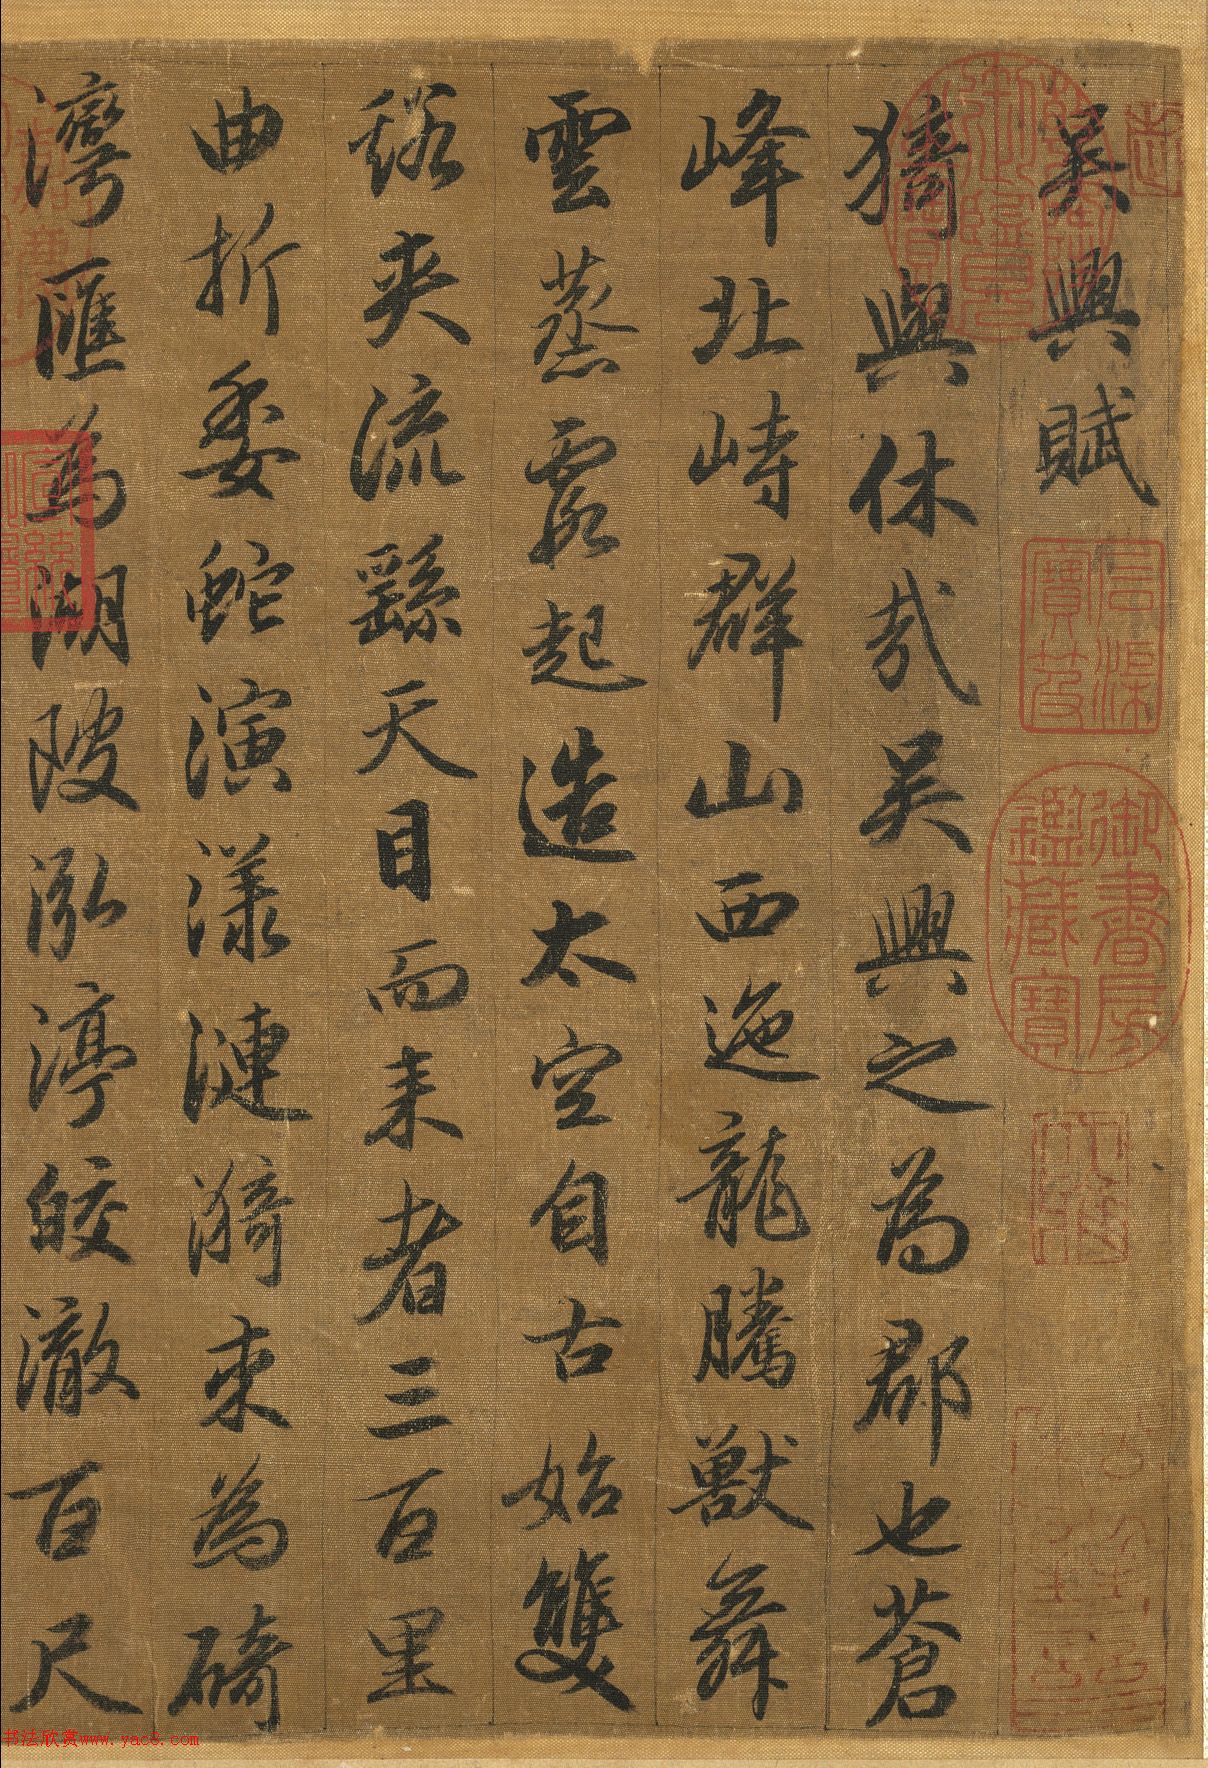 吳興賦
猗與休哉吳興之為郡也蒼
峰北峙群山西迤龍騰獸舞
雲蒸霞起造太空自古始雙
谿夾流繇天目而来者三百里
曲折委蛇演漾漣漪来為碕
灣匯為湖陂泓渟皎澈百尺
御書房鑑藏寶
书法欣赏www.yac8.com